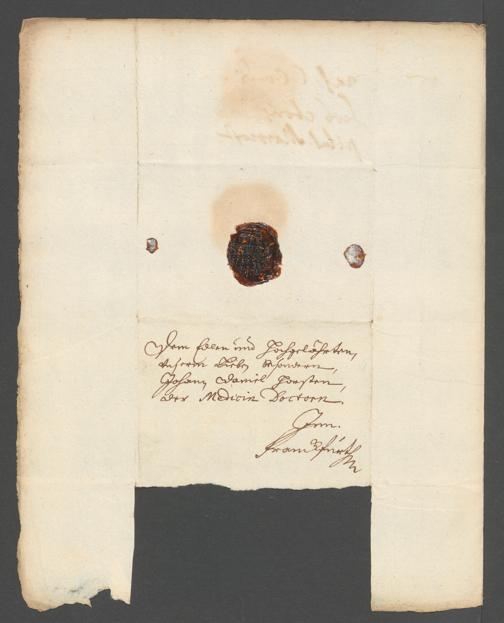 Dem Edlen und Hochgelährten,
Unserm Lieben Besondern,
Johann Daniel Horsten,
der Medicin Doctorn.
Inn.
Franckfúrth